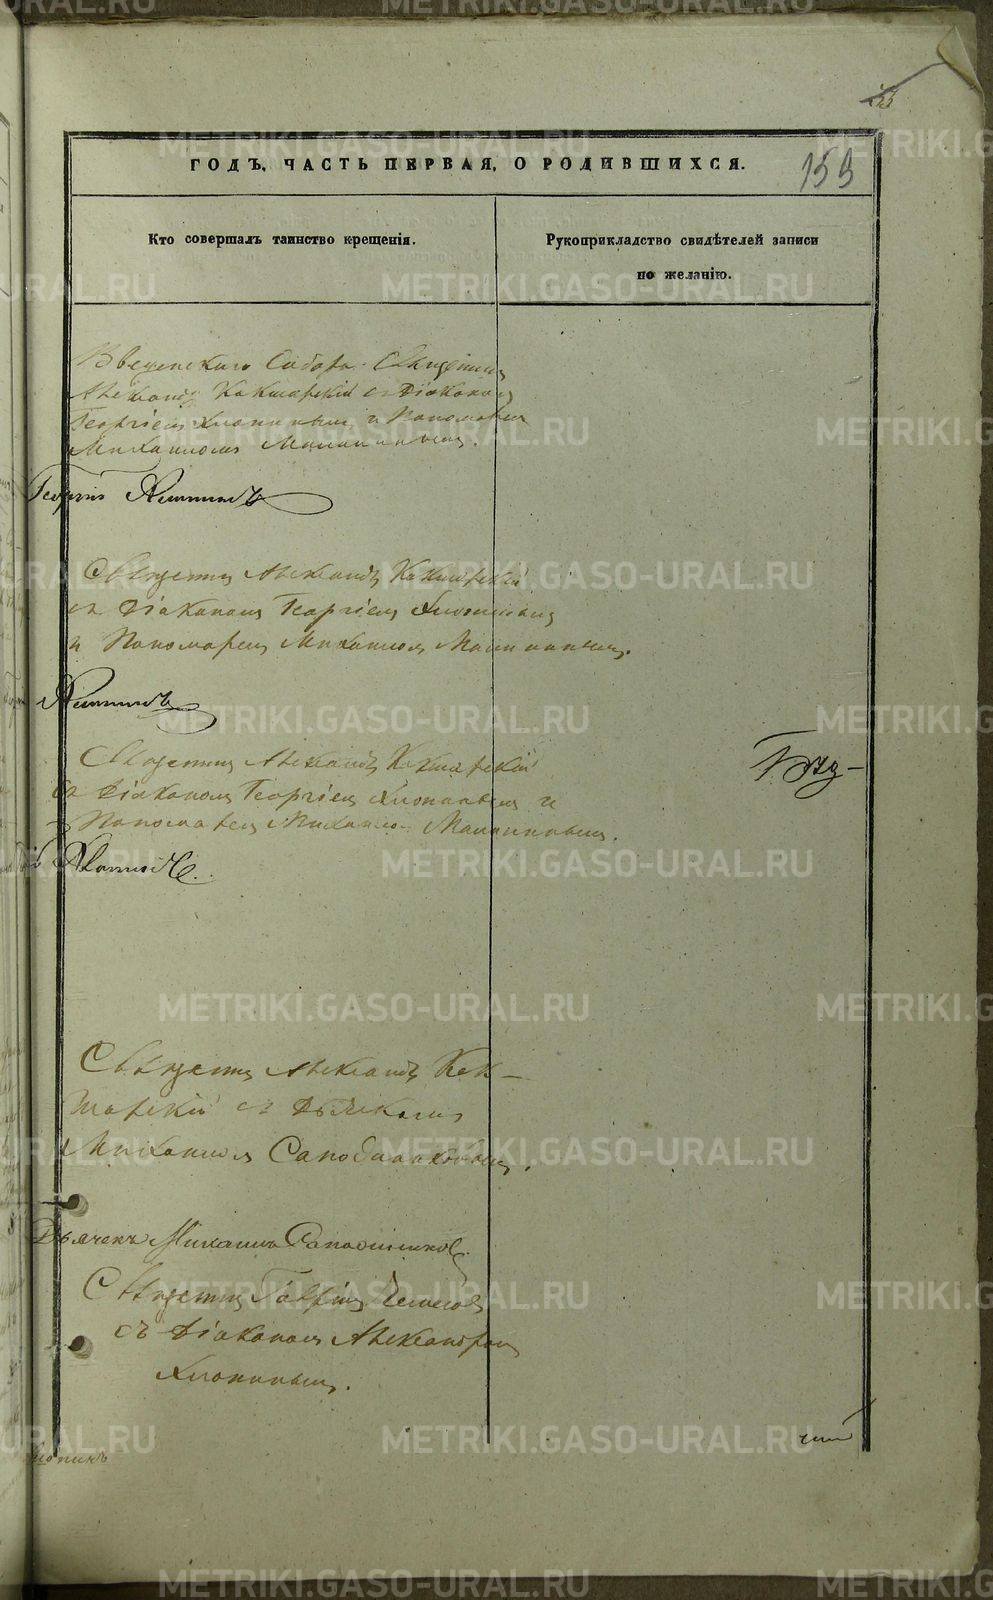 155
ГОДЪ, ЧАСТЬ ПЕРВАЯ, О РОДИВШИХСЯ.
159
Кто совершалъ таинство крещенія.
Рукоприкладство свидѣтелей записи
по желанію.
Введенскаго Собора Священникъ
Александръ Кокшарскій съ Діакономъ
Георгіемъ Хлопинымъ и Пономаремъ
Михаиломъ Малининымъ.
Георгій Хлопинъ
Священникъ Александръ Кокшарскій
съ Діакономъ Георгіемъ Хлопинымъ
и Пономаремъ Михаиломъ Малининымъ.
Хлопинъ
Священникъ Александръ Кокшарскій
съ Діакономъ Георгіемъ Хлопинымъ и
Пономаремъ Михаиломъ Малининымъ.
Хлопинъ
Священникъ Александръ Кок-
шарскій съ Дьячкомъ
Михаиломъ Сапожниковымъ.
Дьячекъ Михаилъ Сапожниковъ.
Священникъ Гавріилъ
съ Діакономъ Александромъ
Хлопинымъ.
METRIKI.GASO-URAL.RU